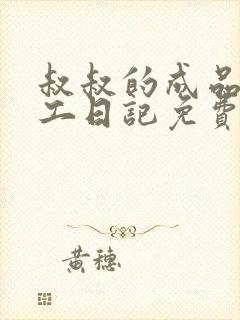 叔叔的成品
工日記免費
黃穗